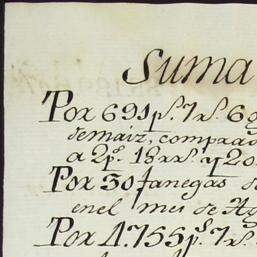 Suma
Por 691 ps. 7 rs. 6 g
de maiz, comprad
a 2 ps. 18 rrs. y 20
Por 30 fanegas de
en el mes de Ag
Por 4.755 ps. 7 rs.